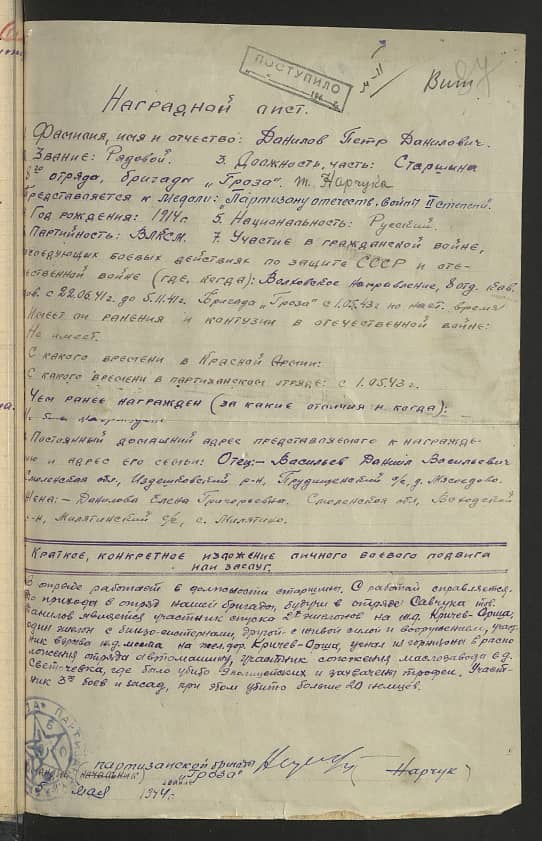 ПОСТУПИЛО
Вит 87
Наградной лист.
Фамилия, имя и отчество: Данилов Петр Данилович.
Звание: Рядовой. 3. Должность, часть: Старшина
отряда, бригады „Гроза". т. Нарчука
Представляется к медали: „Партизану отечеств. войны" II степени.
Год рождения: 1914 г. 5. Национальность: Русский.
Партийность: ВЛКСМ. 7. Участие в гражданской войне,
последующих боевых действиях по защите СССР и оте-
чественной войне (где, когда): Волховское направление, 8 отд.
с 22.06.41 г. до 5.11.41 г. Бригада „Гроза" с 1.05.43 г. по наст. время
Имеет ли ранения и контузии в отечественной войне:
Не имеет.
С какого времени в Красной Армии:
С какого времени в партизанском отряде: с 1.05.43 г.
Чем ранее награжден (за какие отличия и когда):
Постоянный домашний адрес представляемого к награжде-
нию и адрес его семьи: Отец:– Васильев Даниил Васильевич
Смоленская обл, Издешковский р-н, с/с, д. Мясоедово.
Жена:– Данилова Елена Григорьевна. Смоленская обл,
р-н, Милятинский с/с, с. Милятино.
Краткое, конкретное изложение личного боевого подвига
или заслуг.
В отряде работает в должности старшины. С работой справляется.
До прихода в отряд нашей бригады, будучи в отряде Савчука тов.
Данилов является участник спуска 2х эшелонов на ж.д. Кричев-Орша,
один эшелон с бинзо-цистернами, другой с живой силой и вооружением, участ-
ник взрыва ж.д. моста на жел.дор. Кричев-Орша, угнал из гарнизона в распо-
ложения отряда автомашину, участник сожжения маслозавода в д.
Светочевка, где было убито полицейских и захвачены трофеи. Участ-
ник 3х боев и засад, при этом убито больше 20 немцев.
партизанской бригады
(начальник) „Гроза" (Нарчук)
мая 1944 г.